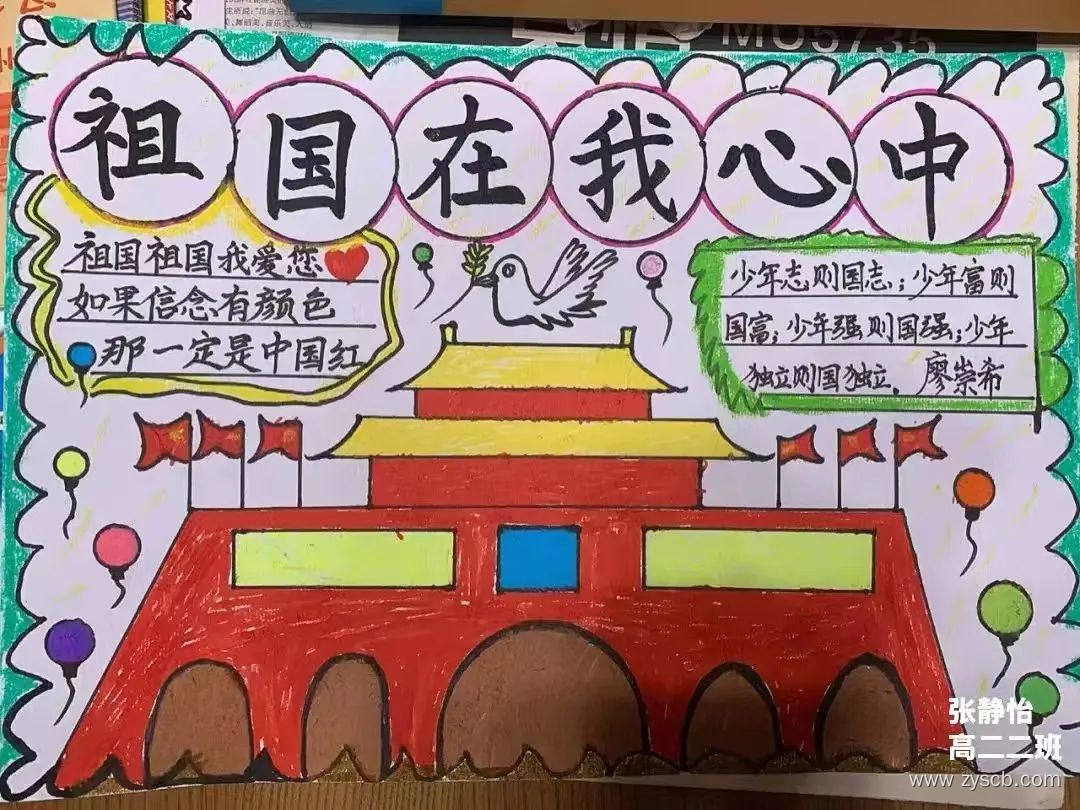 MU5735
祖国在我心中
祖国祖国我爱您
如果信念有颜色
那一定是中国红
少年志则国志；少年富则
国富；少年强则国强；少年
独立则国独立，廖崇希
张静怡
高二二班
www.zyscb.com